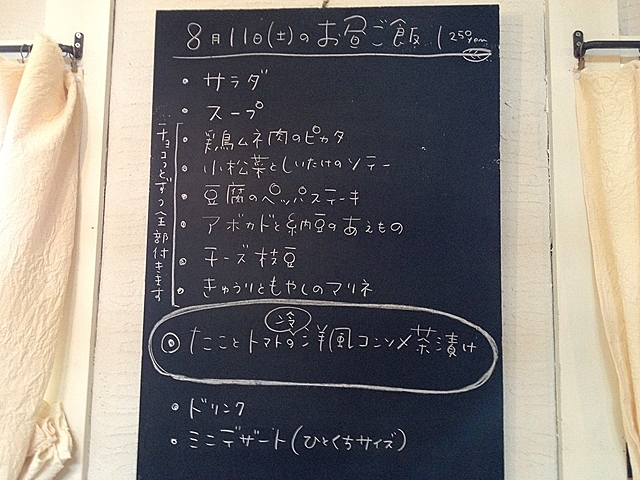 8月11日(土)のお昼ご飯 1250yen
・サラダ
・スープ
・鶏ムネ肉のピカタ
・小松菜としいたけのソテー
・豆腐のペッパーステーキ
・アボカドと納豆のあえもの
・チーズ枝豆
・きゅうりともやしのマリネ
チョコっとずつ全部付きます
◎たことトマトの冷洋風コンソメ茶漬け
・ドリンク
・ミニデザート(ひとくちサイズ)